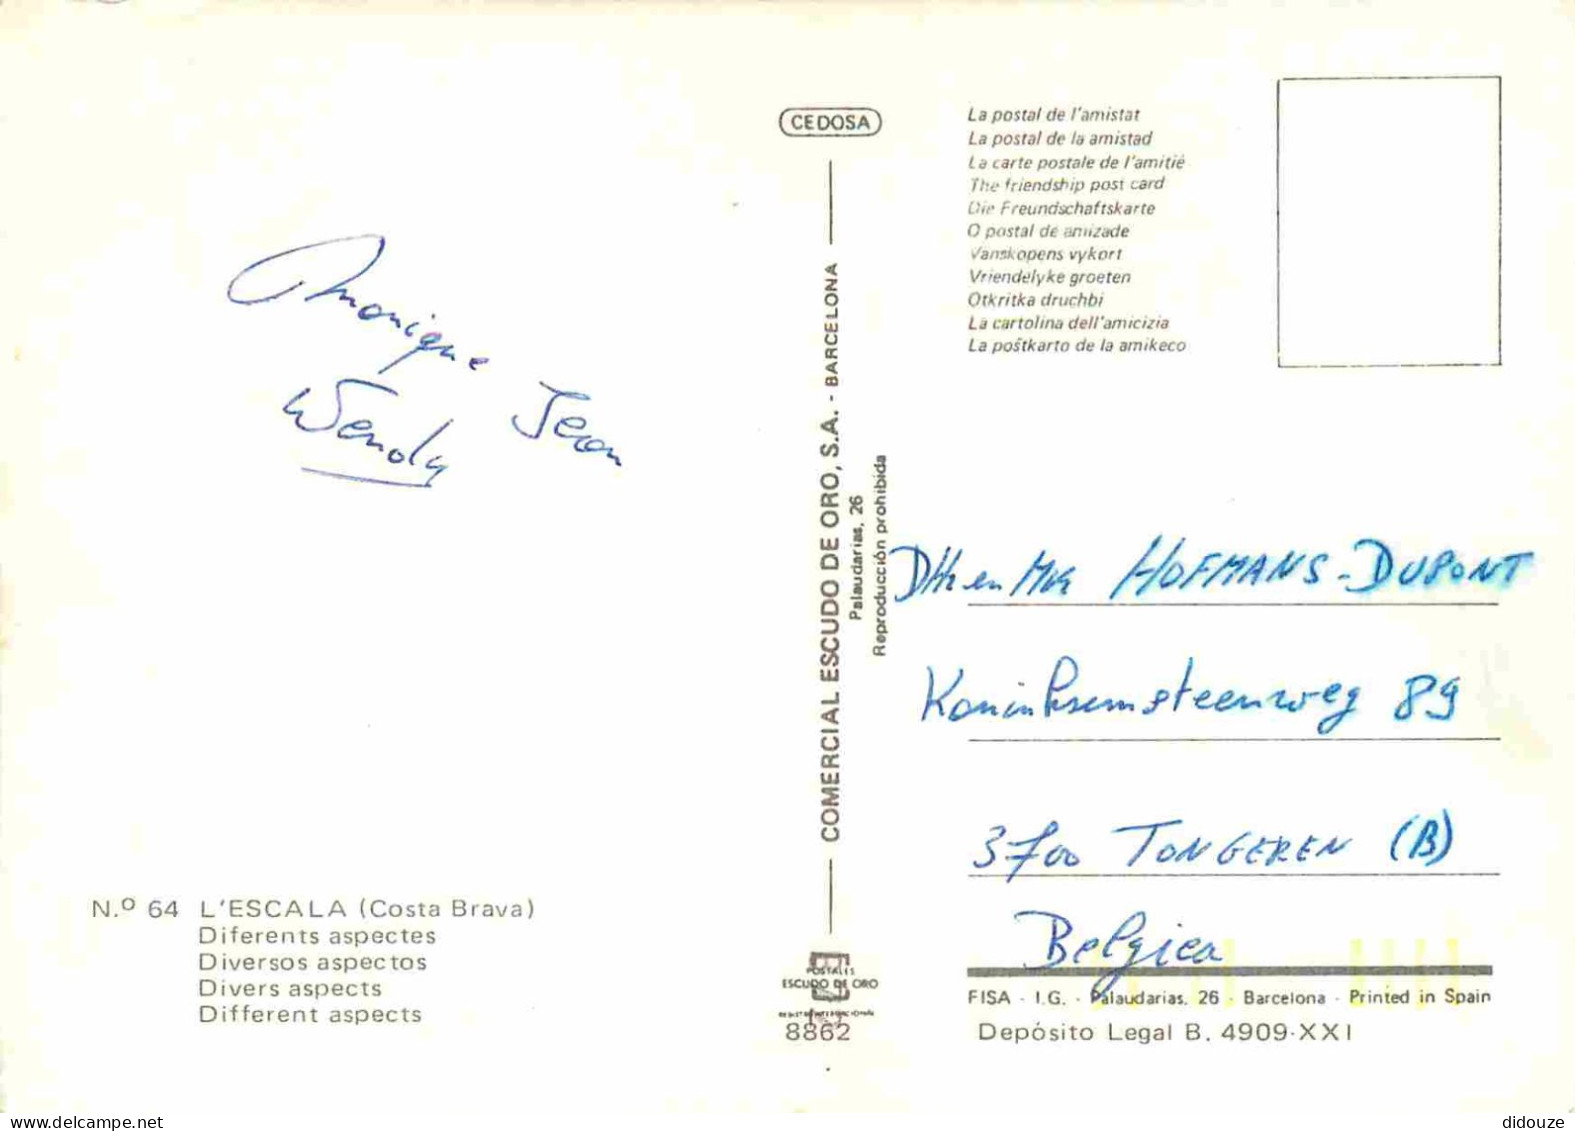 Monique Jean
Wendy
N.º 64 L'ESCALA (Costa Brava)
Diferents aspectes
Diversos aspectos
Divers aspects
Different aspects
CEDOSA
COMERCIAL ESCUDO DE ORO, S.A. - BARCELONA
Palaudarias, 26
Reproducción prohibida
POSTALES
ESCUDO DE ORO
8862
La postal de l'amistat
La postal de la amistad
La carte postale de l'amitié
The friendship post card
Die Freundschaftskarte
O postal de amizade
Vanskopens vykort
Vriendelyke groeten
Otkritka druchbi
La cartolina dell'amicizia
La poŝtkarto de la amikeco
Dhr en Mw HOFMANS-DUPONT
Koninksemsteenweg 89
3700 TONGEREN (B)
Belgica
FISA - I.G. - Palaudarias, 26 - Barcelona - Printed in Spain
Depósito Legal B. 4909-XXI
delcampe.net
didouze